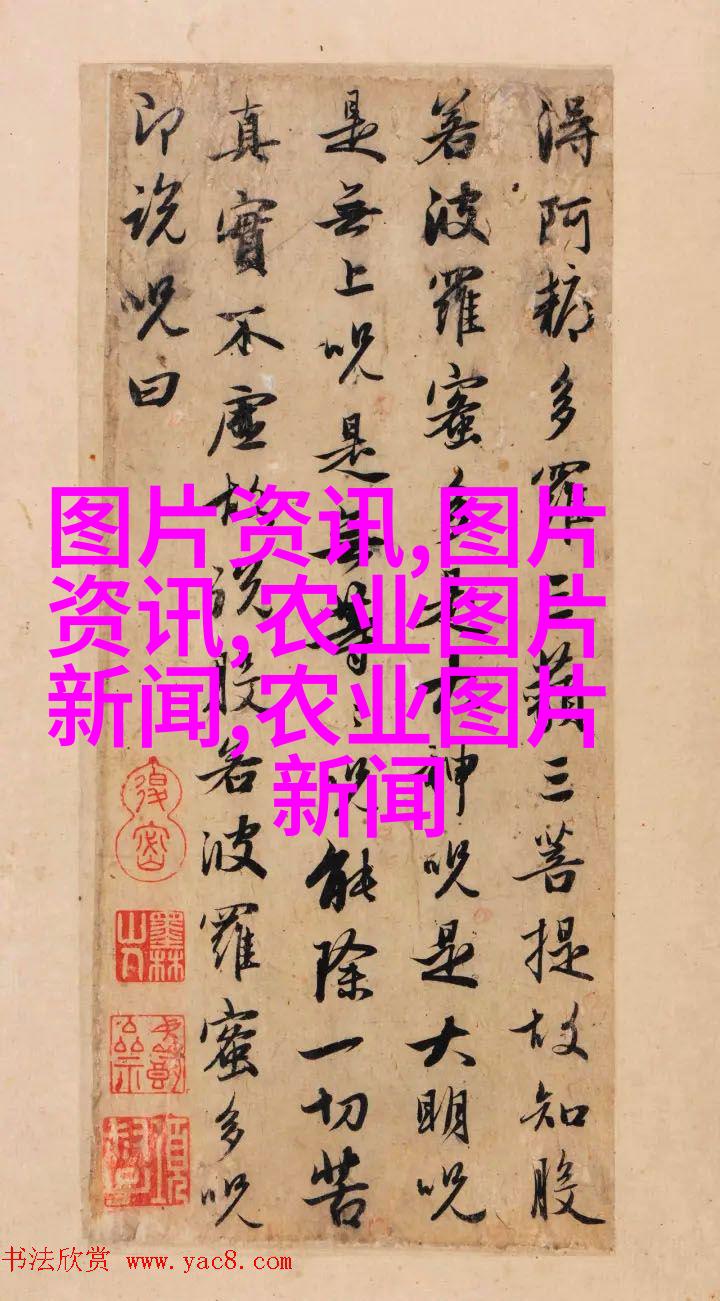 得阿耨多羅三藐三菩提故知般
若波羅蜜多是大神呪是大明呪
是無上呪是無等々呪能除一切苦
真實不虛故說般若波羅蜜多呪
即說呪曰
图片资讯,图片
资讯,农业图片
新闻,农业图片
新闻
墨林山人
书法欣赏 www.yac8.com